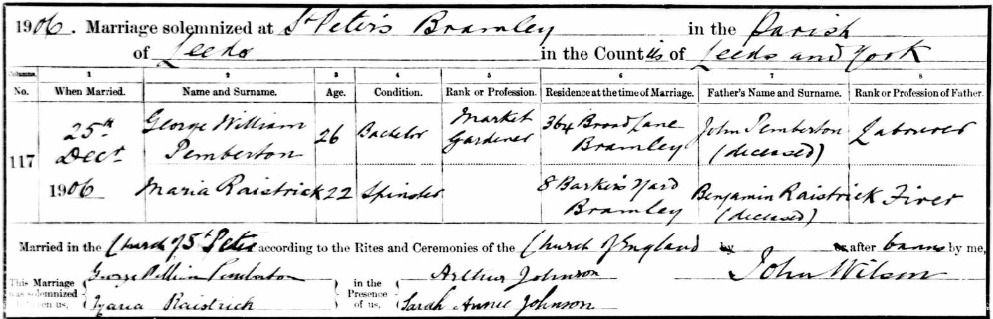 1906. Marriage solemnized at St Peter's Bramley in the Parish
of Leeds in the Counties of Leeds and York
Columns. 1 2 3 4 5 6 7 8
No. When Married. Name and Surname. Age. Condition. Rank or Profession. Residence at the time of Marriage. Father's Name and Surname. Rank or Profession of Father.
117 25th Dect 1906 George William Pemberton 26 Bachelor Market Gardener 364 Broad Lane Bramley John Pemberton (deceased) Labourer
Maria Raistrick 22 Spinster 8 Barker's Yard Bramley Benjamin Raistrick (deceased) Firer
Married in the Church of St Peter according to the Rites and Ceremonies of the Church of England by or after banns by me,
This Marriage was solemnized between us, George William Pemberton in the Presence of us, Arthur Johnson John Wilson
Maria Raistrick Sarah Annie Johnson